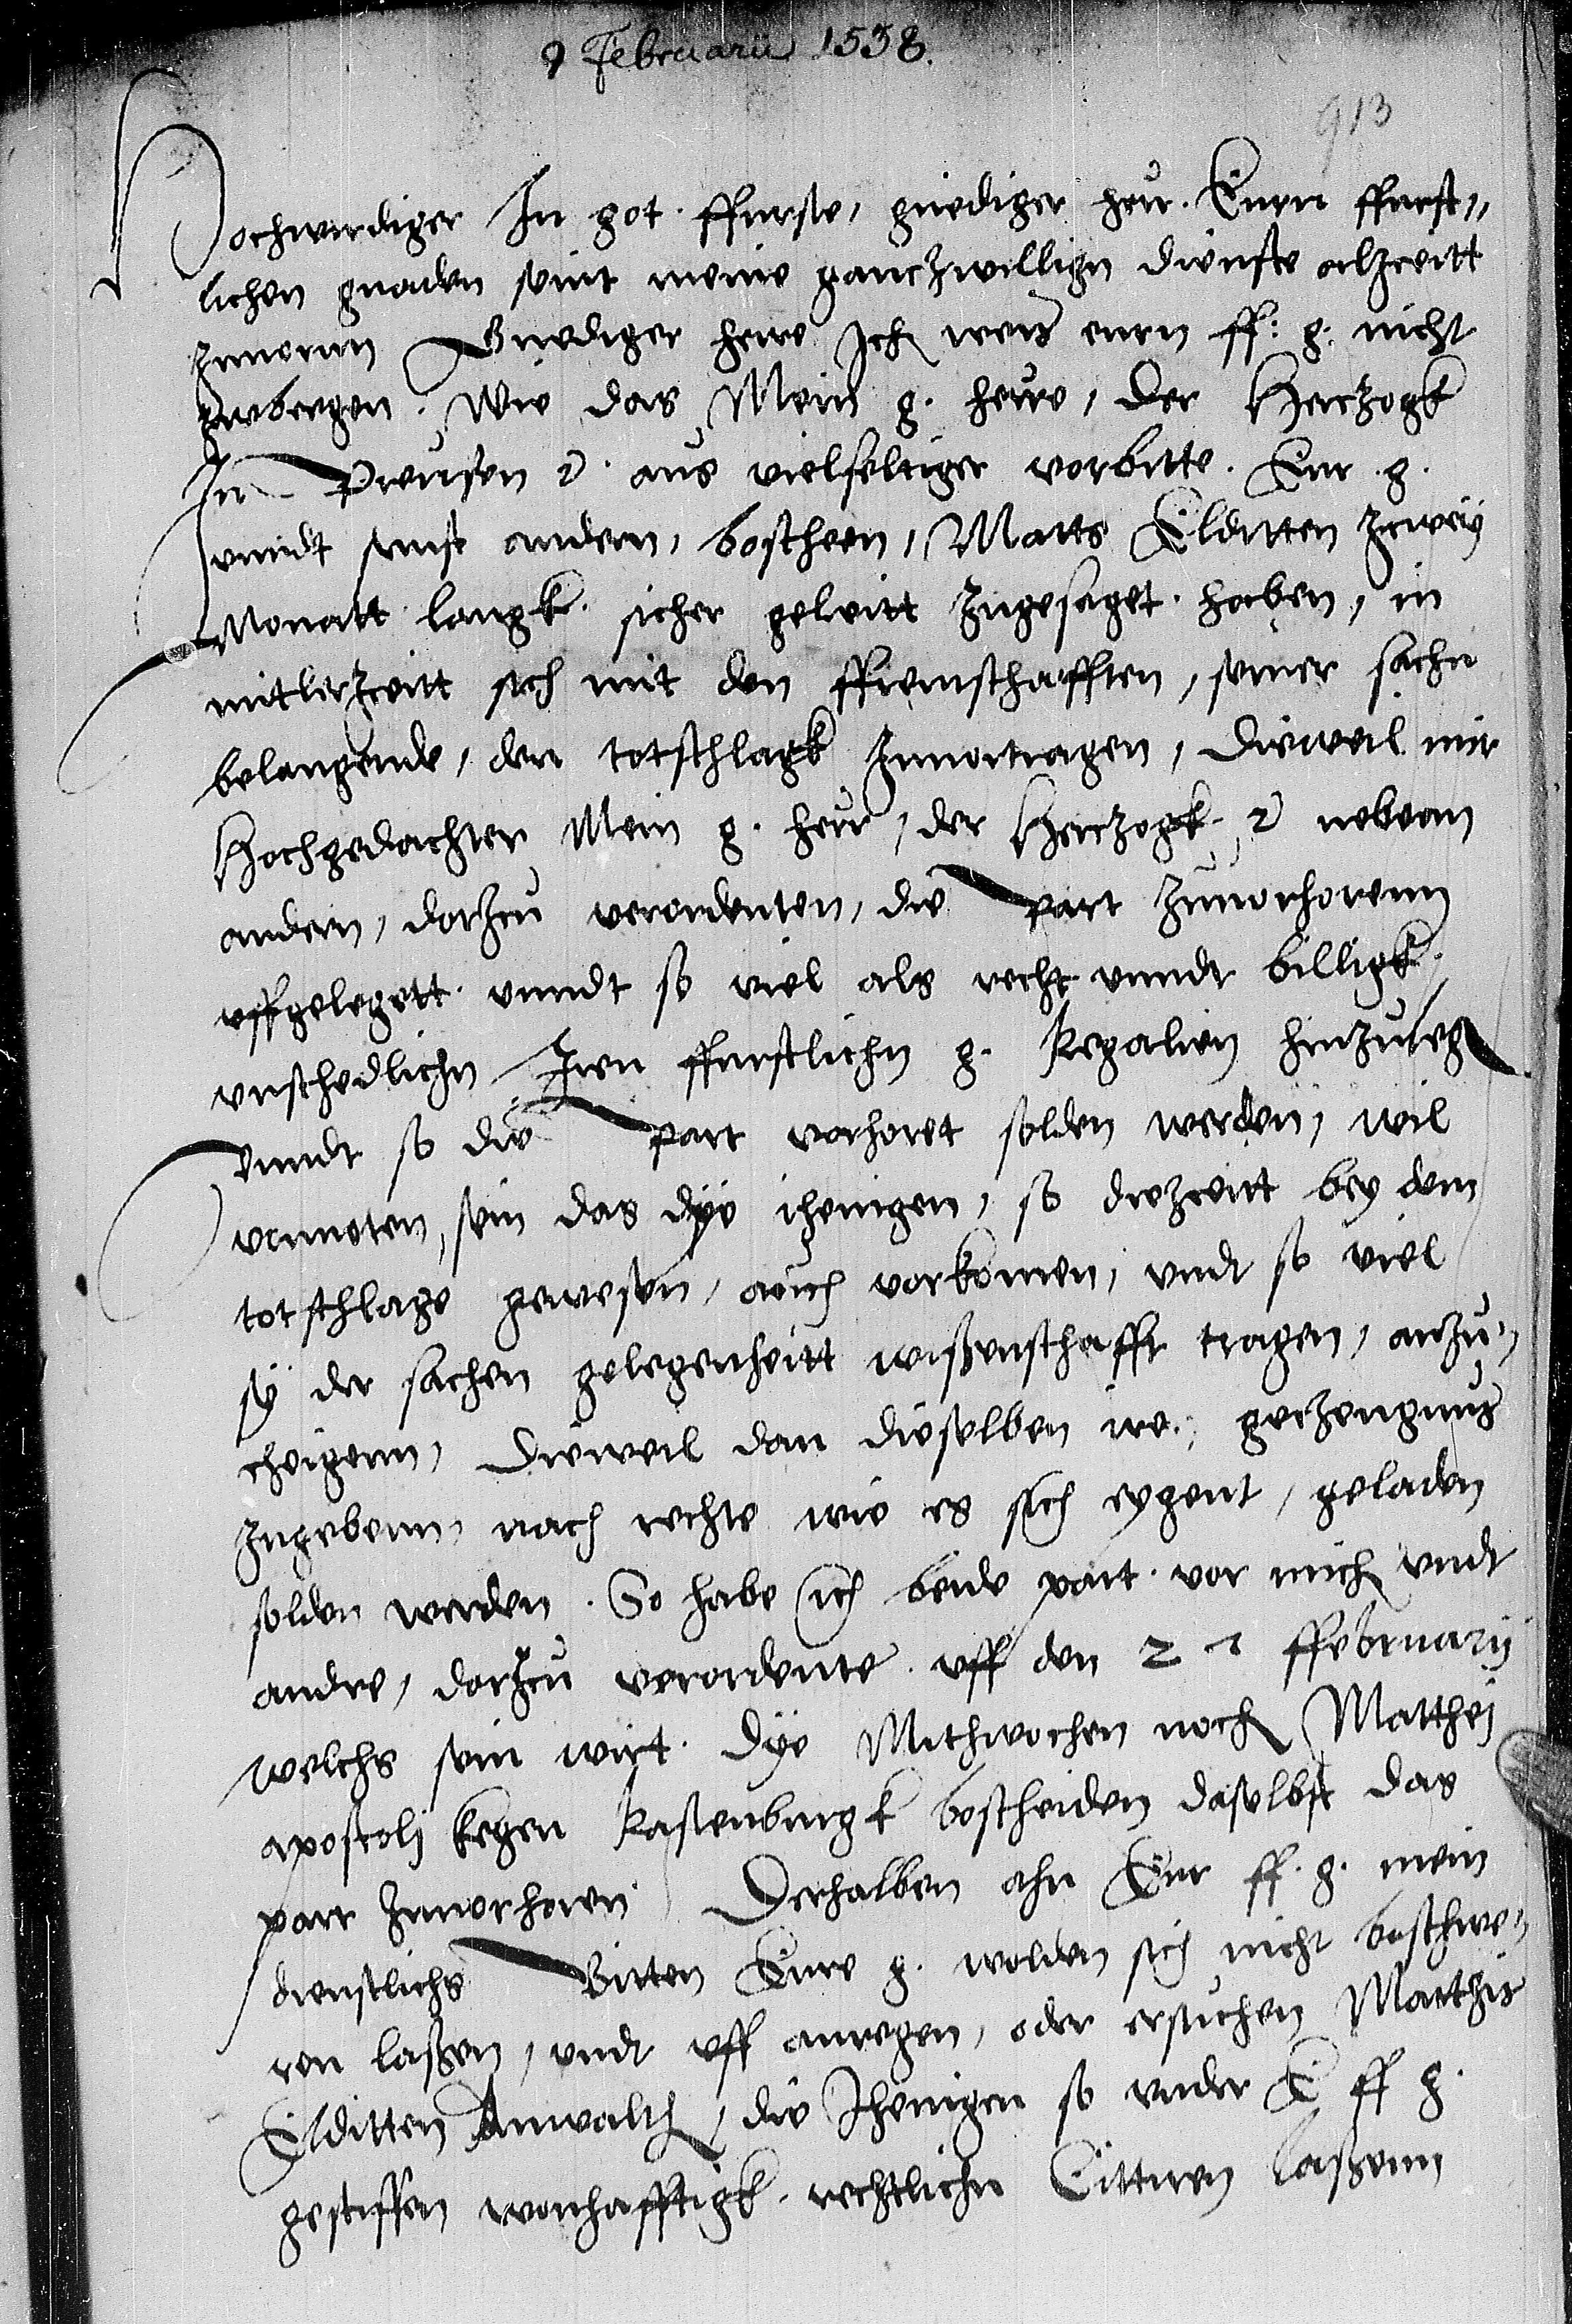 9 Februarii 1538.
913
Hochwirdiger In got ffurste, gnediger herr. Euern ffurst,,
lichen gnaden seint meine ganczwilligen dienste alzceitt
zuuorun Gnediger herre Ich weis euern ff: g. nicht
zcubergen. Wie das Mein g. herre, Der Herczogk
In Preusen etc. aus vielfeltiger vorbitte. Eur. g.
vnndt sunst andern, bescheen, Matts Elditten zcwey
Monatt langk. sicher geleitt zugesaget. haben, in
mitlerzceitt sich mit den ffreuntschafften, seiner sachn
belangende, den totschlagk zuuortragen, Dieweil mir
Hochgedachter Mein g. herr, der Herczogk etc nebenn
andern, dorzcu verordenten, die part zuuorhorenn
vffgelegett. vnndt so viel als recht vnndt billigk.
vnschedlichn Iren ffurstlichn g. Regalien hinzulegen
vnndt so die part vorhoret solden werden, wil
vonnoten, sein das dye ihenigen, so diezceitt bey dem
totschlage gewesen, auch vorkomen, vndt so viel
sy der sachen gelegenheitt wißenschafft tragen, anzu,,
cheigenn, Dieweil dan dieselben ire. geczeugnus
zugebenn, nach rechte wie es sich eygent, geladen
solden werden. So habe ich beide part. vor mich vndt
andre, dorzcu verordente. vff den 27 ffebruarij
welchs sein wirt. Dye Mithwochen noch Matthej
apostolj kegen Rastenburgk bescheiden daselbst das
part zuuorhoren. Derhalben ahn Eur ff. g. mein
dienstlichs Bitten Eure g. wolden sich nicht beschwe,,
ren laßen, vndt vff anregen, oder ersuchen Matthis
Elditten Anwalth, die Ihenigen so vnder E ff g.
gestifften wonhafftigk. rechtlichn Cittiren laßenn